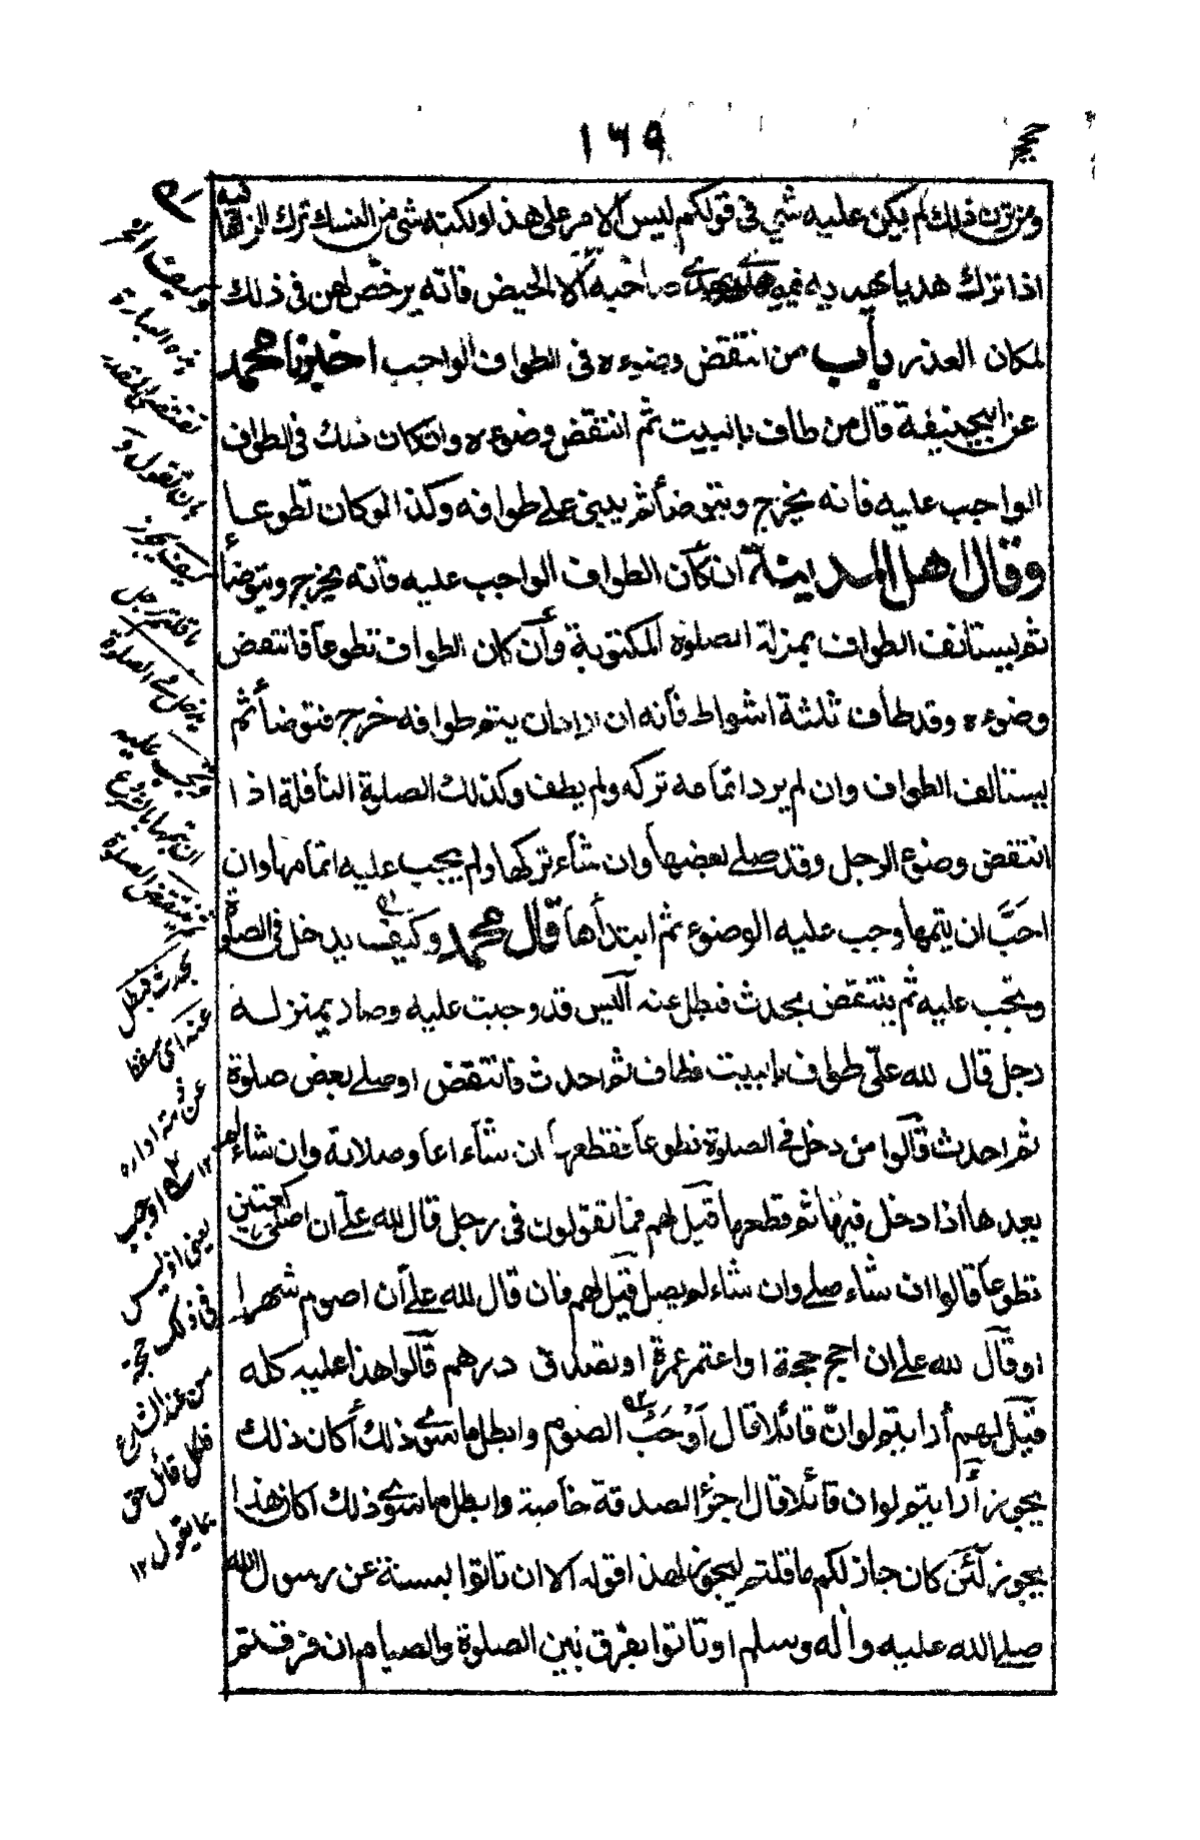 حج
١٦٩
ومن ترك ذلك لم يكن عليه شي في قولكم ليس الامر على هذا ولكنه شي من النسك ترك الزمتم فيه
اذا ترك هديا يهديه صاحبه الا الحيض فانه يرخص لهن في ذلك
لمكان العذر باب من انتقض وضوءه في الطواف الواجب اخبرنا محمد
عن ابيحنيفة قال من طاف بالبيت ثم انتقض وضوءه وان كان ذلك في الطواف
الواجب عليه فانه يخرج ويتوضأ ثم يبني على طوافه وكذا لو كان تطوعا
وقال اهل المدينة ان كان الطواف الواجب عليه فانه يخرج ويتوضأ
ثم يستانف الطواف بمنزلة الصلوة المكتوبة وأن كان الطواف تطوعا فانتقض
وضوءه وقد طاف ثلثة اشواط فانه ان اراد ان يتم طوافه خرج فتوضأ ثم
يستالف الطواف وان لم يرد اتمامه تركه ولم يطف وكذلك الصلوة النافلة اذا
انتقض وضوع الرجل وقد صلے بعضها وان شاء تركها ولم يجب عليه اتمامها وان
احب ان يتمها وجب عليه الوضوع ثم ابتدأها قال محمد وكيف يدخل في الصلوة
وتجب عليه ثم ينتقض بحدث فبطل عنه اليس قد وجبت عليه وصار بمنزلـه
رجل قال لله علّي طواف بالبيت فطاف ثم احدث فانتقض اوصلے بعض صلوة
ثم احدث قالوا من دخل في الصلوة تطوعا فقطعها ان شاء اعاد صلاته وان شاء لم
يعدها اذا دخل فيها ثم قطعها قيل لهم فما تقولون في رجل قال لله علّے ان اصلى ركعتين
تطوعا قالوا ان شاء صلے وان شاء لم يصل قيل لهم فان قال لله علے ان اصوم شهرا
او قال لله علے ان احج حجة او اعتمر عمرة او تصدق درهم قالوا هذا عليه كله
قيل لهم أرايتم لو ان قائلا قال اوجب الصوم وابطل ما سوے ذلك أكان ذلك
يجوز أرايتم لو ان قائلا قال اجزؤ الصدقة خاصة وابطل ما سوے ذلك اكان هذا
يجوز لئن كان جاز لكم ما قلتم ليجوز لهذا قوله الا ان تاتوا بسنة عن رسول الله
صلے الله عليه واله وسلم او تاتوا بفرق بين الصلوة والصيام ان فرقتم
العبارة
ما قلتم رجل
يدخل في الصلوة
وتجب عليه
ان يتمها بالشروع
ثم ينتقض الصلوة
بحدث فبطل
عنه اى سقط
عن ذمته اداءه
١٢
اوجب
يعنى اوليس
في ذلك حجة
من عند الشرع
فلكل قائل حق
بما يقول ١٢